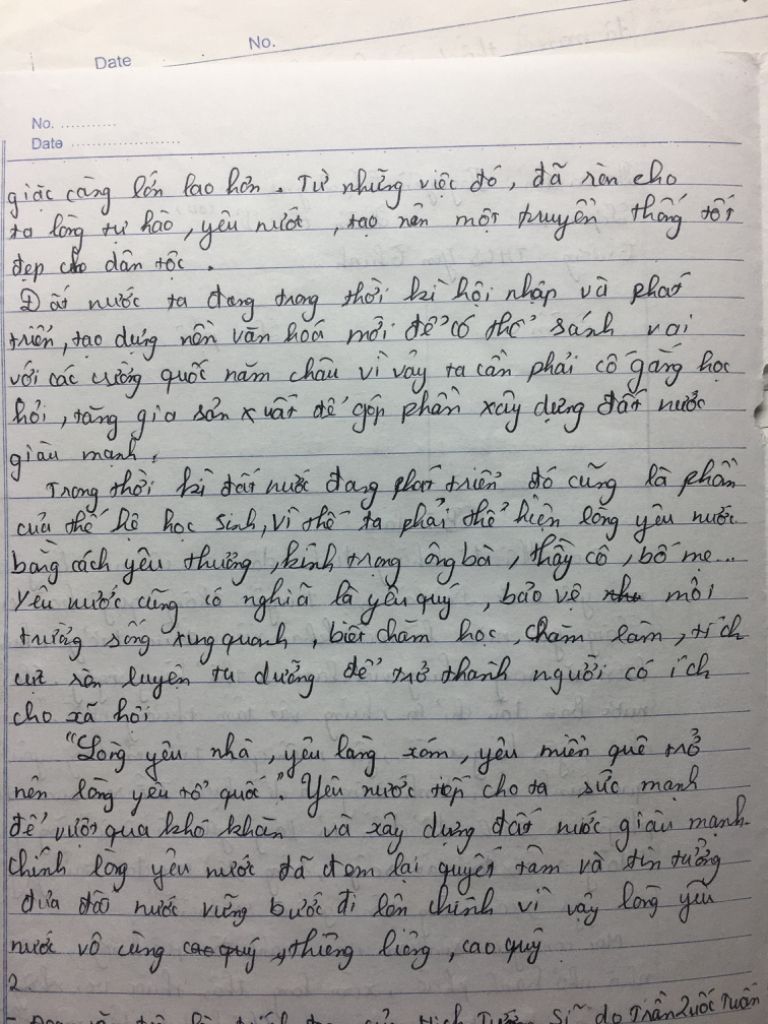 No.
Date
No. ...........
Date ......................
giặc càng lớn lao hơn. Từ những việc đó, đã rèn cho
ta lòng tự hào, yêu nước, tạo nên một truyền thống tốt
đẹp cho dân tộc.
Đất nước ta đang trong thời kì hội nhập và phát
triển, tạo dựng nền văn hoá mới để có thể sánh vai
với các cường quốc năm châu vì vậy ta cần phải cố gắng học
hỏi, tăng gia sản xuất để góp phần xây dựng đất nước
giàu mạnh.
Trong thời kì đất nước đang phát triển đó cũng là phần
của thế hệ học sinh, vì thế ta phải thể hiện lòng yêu nước
bằng cách yêu thương, kính trọng ông bà, thầy cô, bố mẹ...
Yêu nước cũng có nghĩa là yêu quý, bảo vệ môi
trường sống xung quanh, biết chăm học, chăm làm, tích
cực rèn luyện tu dưỡng để trở thành người có ích
cho xã hội
"Lòng yêu nhà, yêu làng xóm, yêu miền quê trở
nên lòng yêu tổ quốc". Yêu nước tiếp cho ta sức mạnh
để vượt qua khó khăn và xây dựng đất nước giàu mạnh.
Chính lòng yêu nước đã đem lại quyết tâm và tin tưởng
đưa đất nước vững bước đi lên chính vì vậy lòng yêu
nước vô cùng cao quý, thiêng liêng, cao quý
2
Hịch Tướng Sĩ do Trần Quốc Tuấn